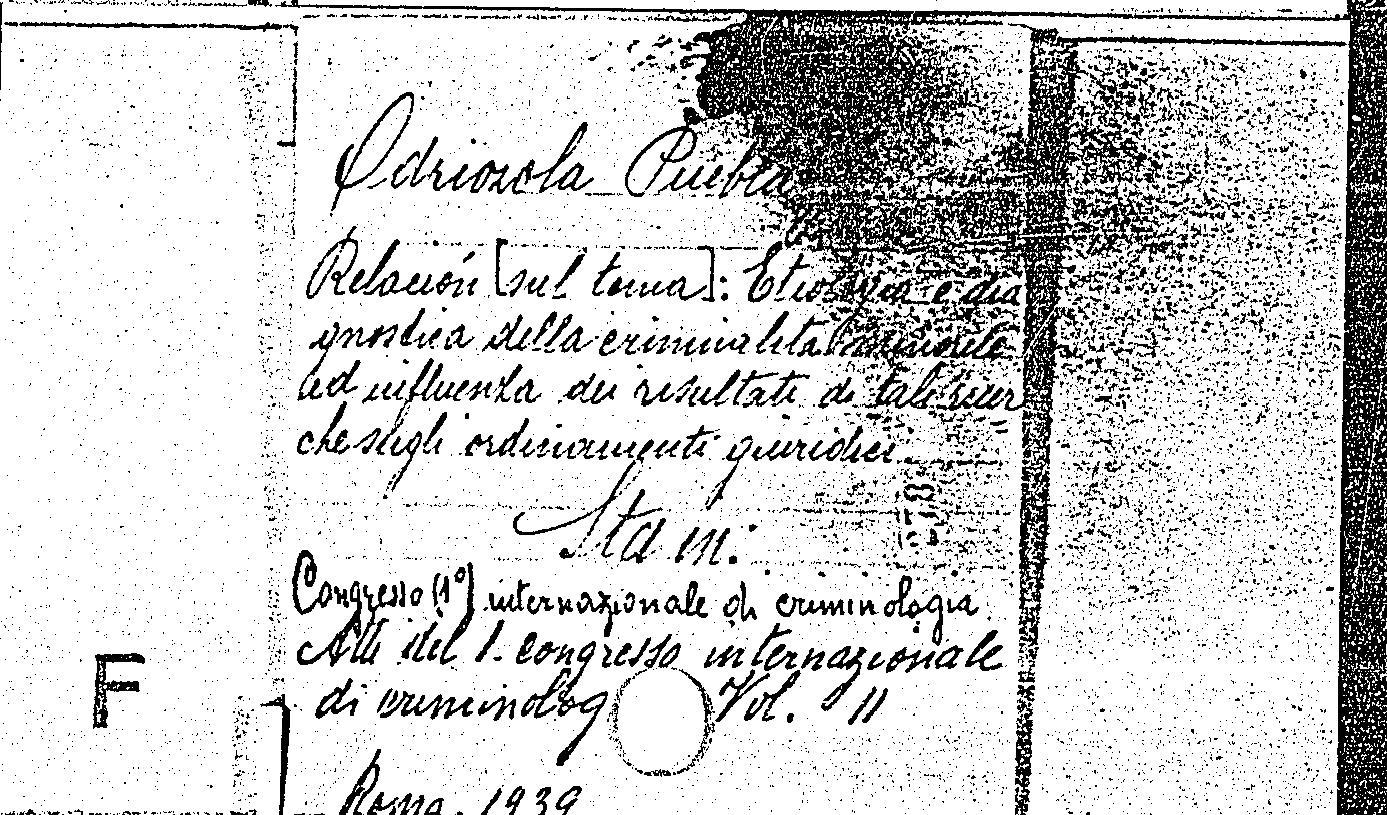 Odriozola Puebla
Relación [sul tema]: Etiologia e dia
gnostica della criminalità minorile
ed influenza dei risultati di tali ricer
che sugli ordinamenti giuridici.
Sta in:
Congresso (1º) internazionale di criminologia
Atti del 1. congresso internazionale
di criminolog Vol. II
Roma, 1939
F